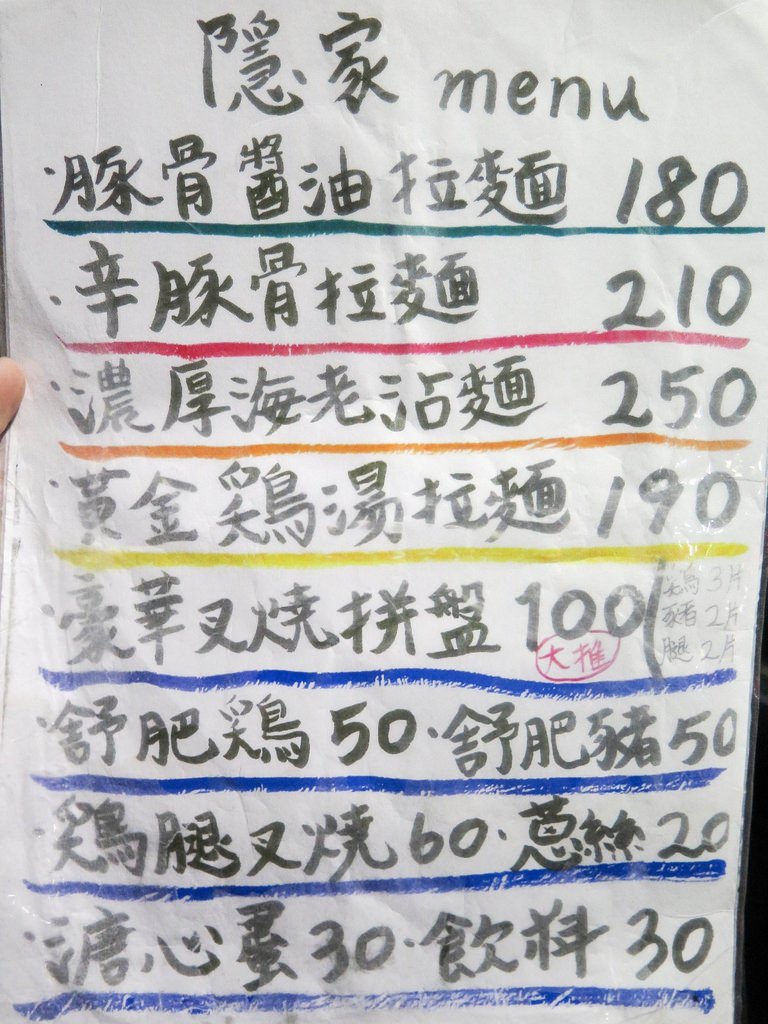 隱家 menu
·豚骨醬油拉麵 180
·辛豚骨拉麵 210
·濃厚海老沾麵 250
·黃金鶏湯拉麵 190
·豪華叉燒拼盤 100
大推
鶏3片
豬2片
腿2片
·舒肥鶏 50·舒肥豬 50
·鶏腿叉燒 60·蔥絲 20
·溏心蛋 30·飲料 30